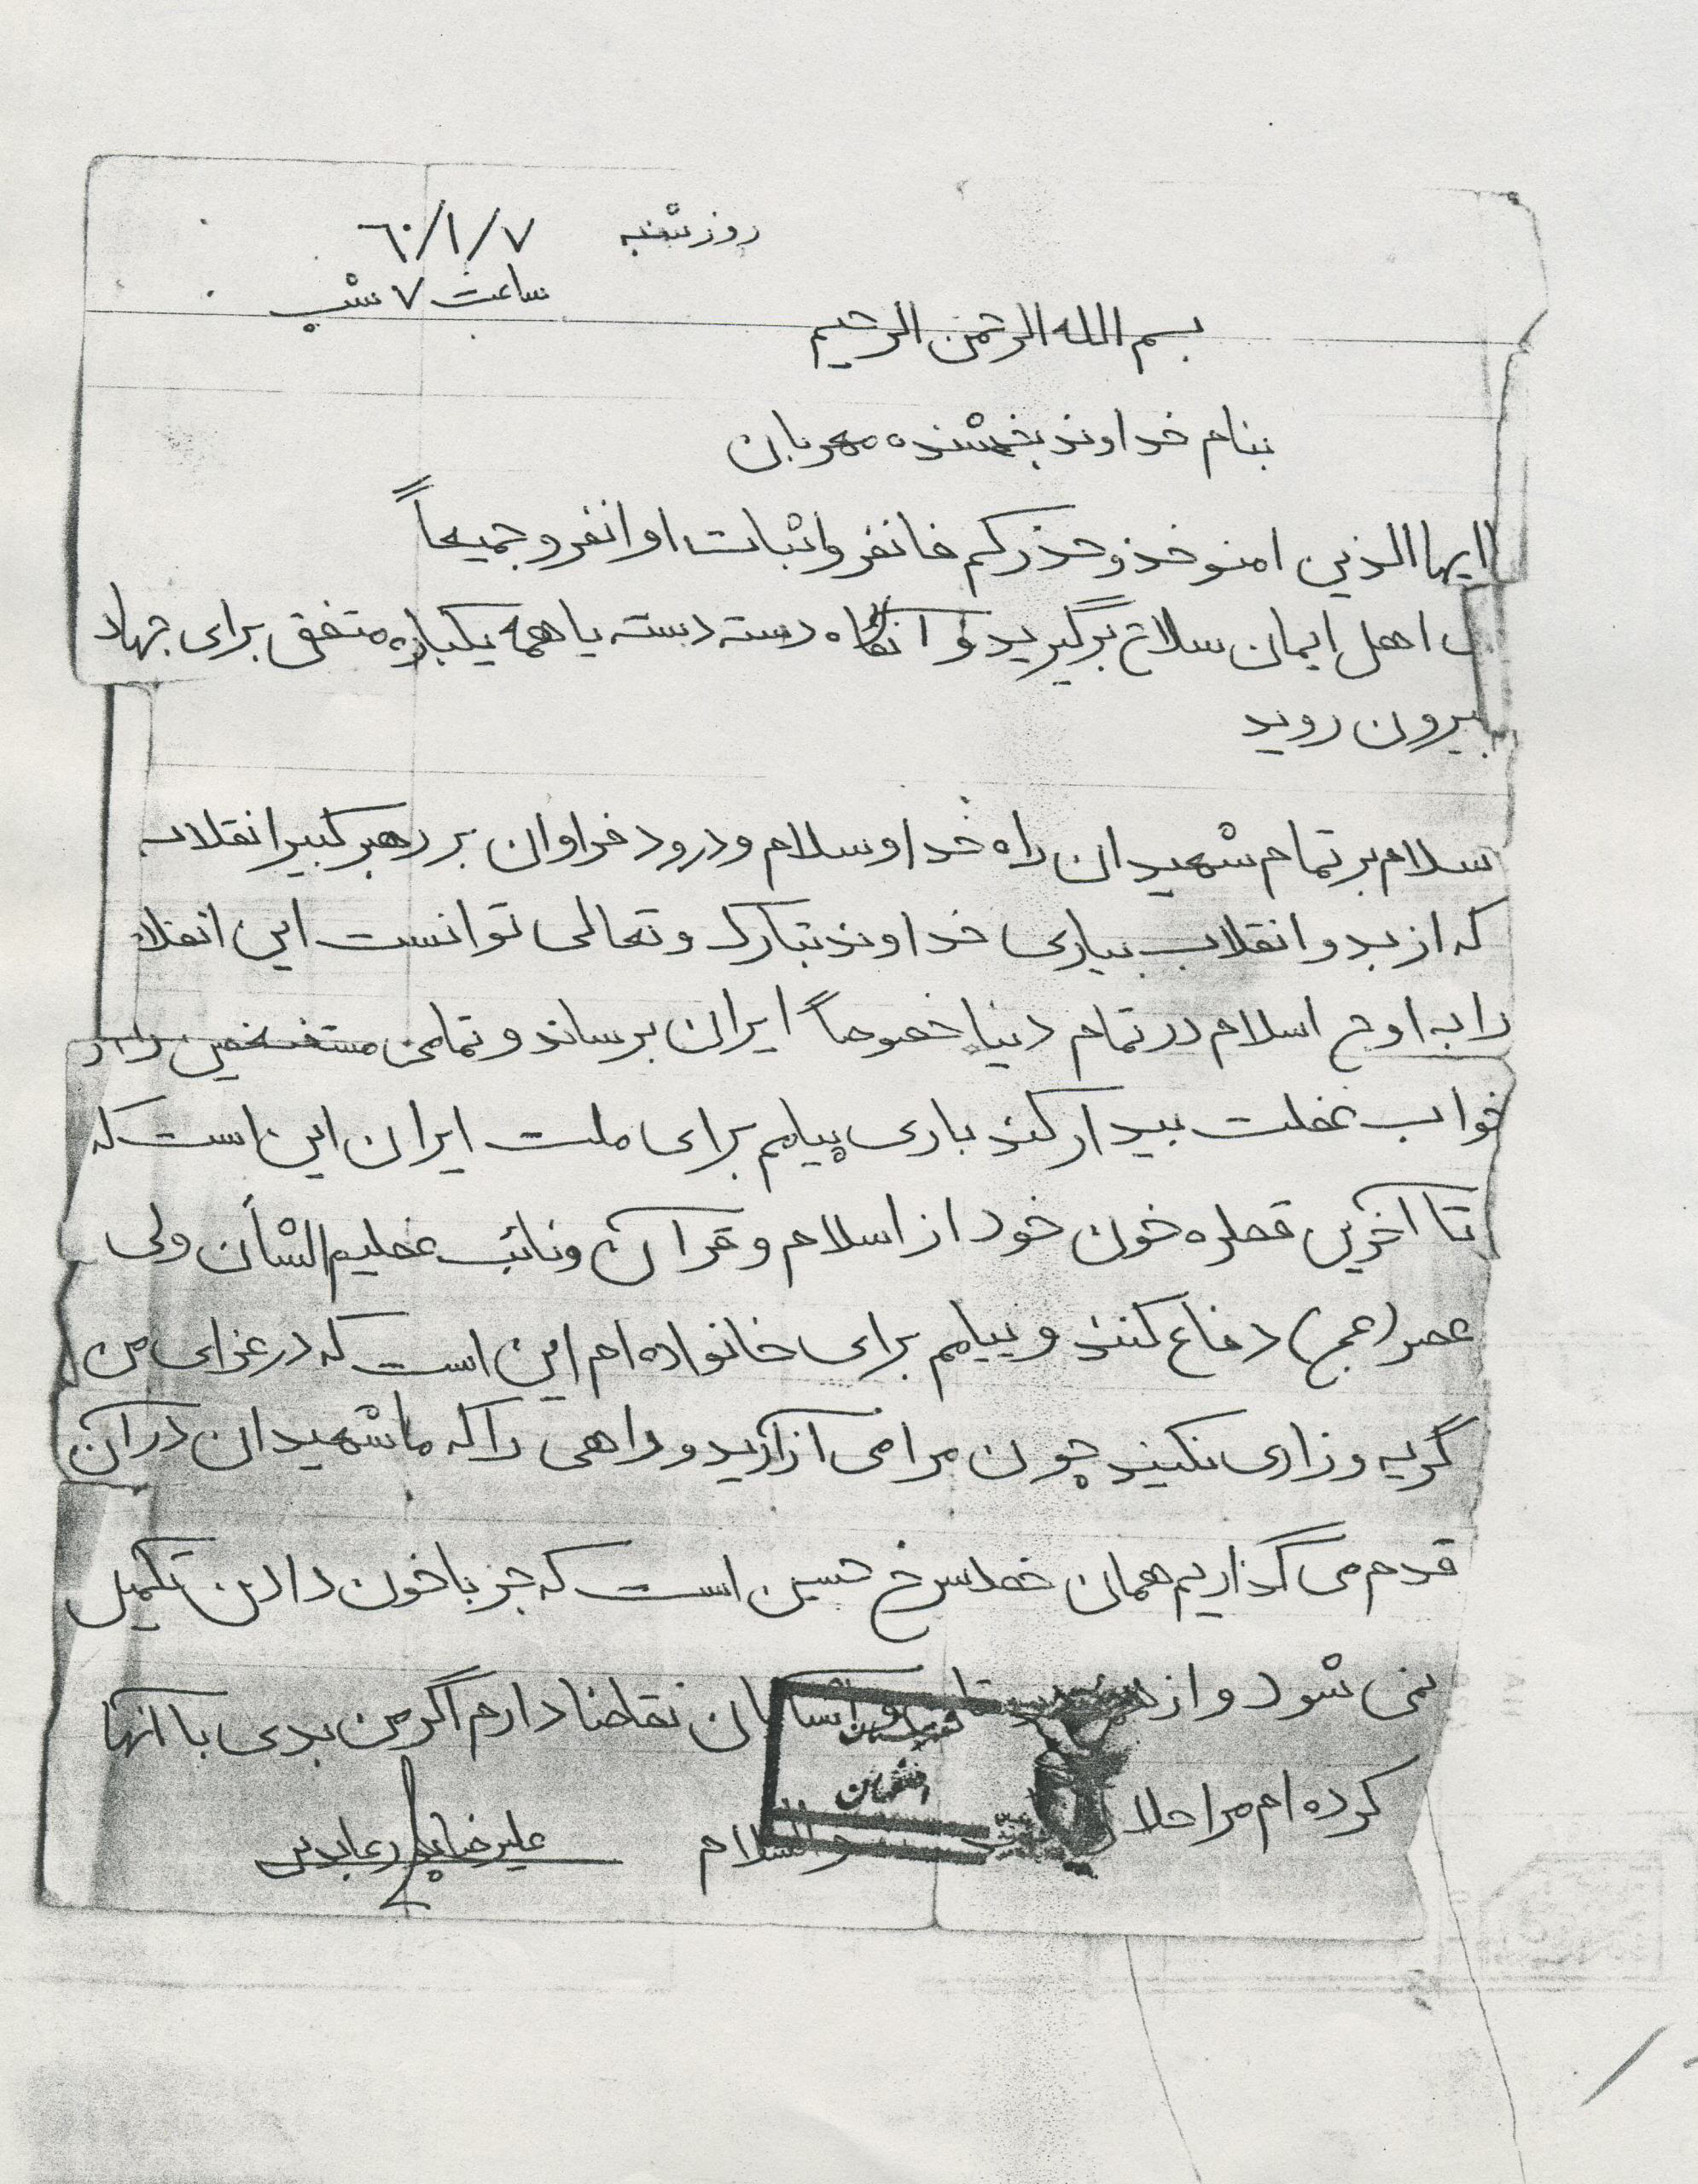 روز شنبه ۶۰/۱/۷
ساعت ۷ شب
بسم الله الرحمن الرحیم
بنام خداوند بخشنده مهربان
ایها الذین امنو خذو حذرکم فانفروا ثبات او انفرو جمیعاً
اهل ایمان سلاح برگیرید و آنگاه دسته دسته یا همه یکباره متفق برای جهاد
بیرون روید
سلام بر تمام شهیدان راه خدا و سلام و درود فراوان بر رهبر کبیر انقلاب
که از بدو انقلاب بیاری خداوند تبارک و تعالی توانست این انقلا
را به اوج اسلام در تمام دنیا خصوصاً ایران برساند و تمامی مستضعفین را از
خواب غفلت بیدار کند باری پیامم برای ملت ایران این است که
تا آخرین قطره خون خود از اسلام و قرآن و نائب عظیم الشأن ولی
عصر (عج) دفاع کنند و پیامم برای خانواده ام این است که در عزای من
گریه و زاری نکنید چون مرا می آزارید و راهی را که ما شهیدان در آن
قدم می گذاریم همان خط سرخ حسین است که جز با خون دادن تکمیل
نمی شود و از و آشنایان تقاضا دارم اگر من بدی با آنها
کرده ام مرا حلال والسلام علیرضا عابدین